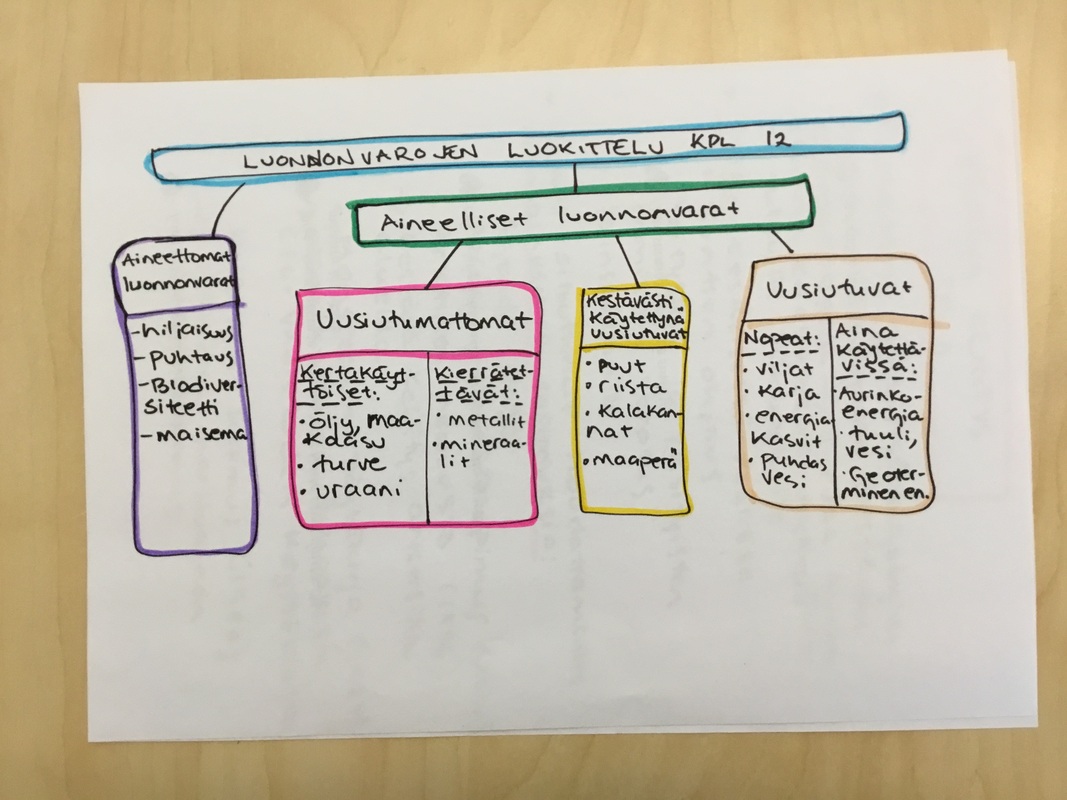 LUONNONVAROJEN LUOKITTELU KPL 12
Aineelliset luonnonvarat
Aineettomat
luonnonvarat
-hiljaisuus
-puhtaus
-Biodiver-
siteetti
-maisema
Uusiutumattomat
Kertakäyt-
töiset:
• öljy, maa-
kaasu
• turve
• uraani
Kierrätet-
tävät:
• metallit
• mineraa-
lit
Kestävästi
käytettynä
uusiutuvat
• puut
• riista
• kalakan-
nat
• maaperä
Uusiutuvat
Nopeat:
• viljat
• karja
• energia
kasvit
• puhdas
vesi
Aina
käytettä-
vissä:
• Aurinko-
energia
• tuuli,
vesi
• Geoter-
minen en.